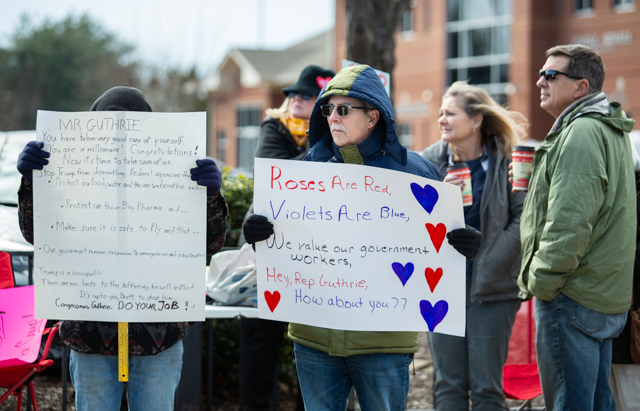 MR GUTHRIE
You have taken very good care of yourself.
You are a millionaire! Congratulations!
Now its time to take care of us.
Stop Trump from dismantling Federal agencies that
Protect our food, water and the air we breathe and
Protect us from Big Pharma and...
Make sure it is safe to fly and that...
Our government
Trump is a sociopath.
There are no limits to the suffering he will inflict.
It's up to you, Brett, to stop him
Congressman Guthrie, DO YOUR JOB!
Roses Are Red,
Violets Are Blue,
We value our government
workers,
Hey, Rep. Guthrie,
How about you??